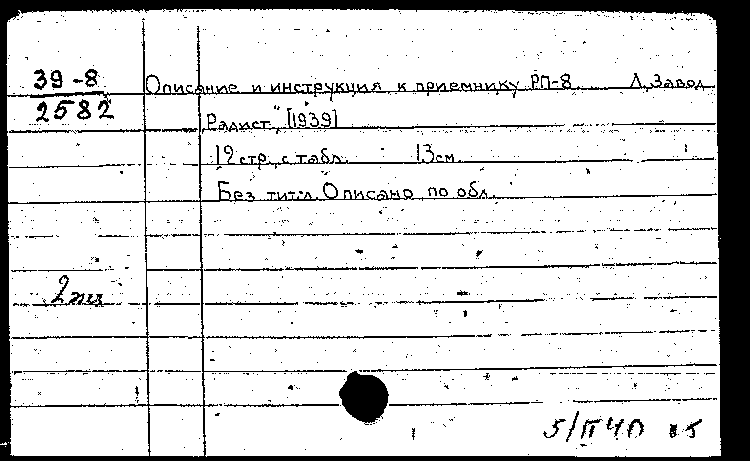 39-8
2582
Описание и инструкция к приемнику РП-8 Л, Завод
"Радист", [1939]
12 стр. с табл. 13 см.
Без тит. л. Описано по обл.
5/II 40